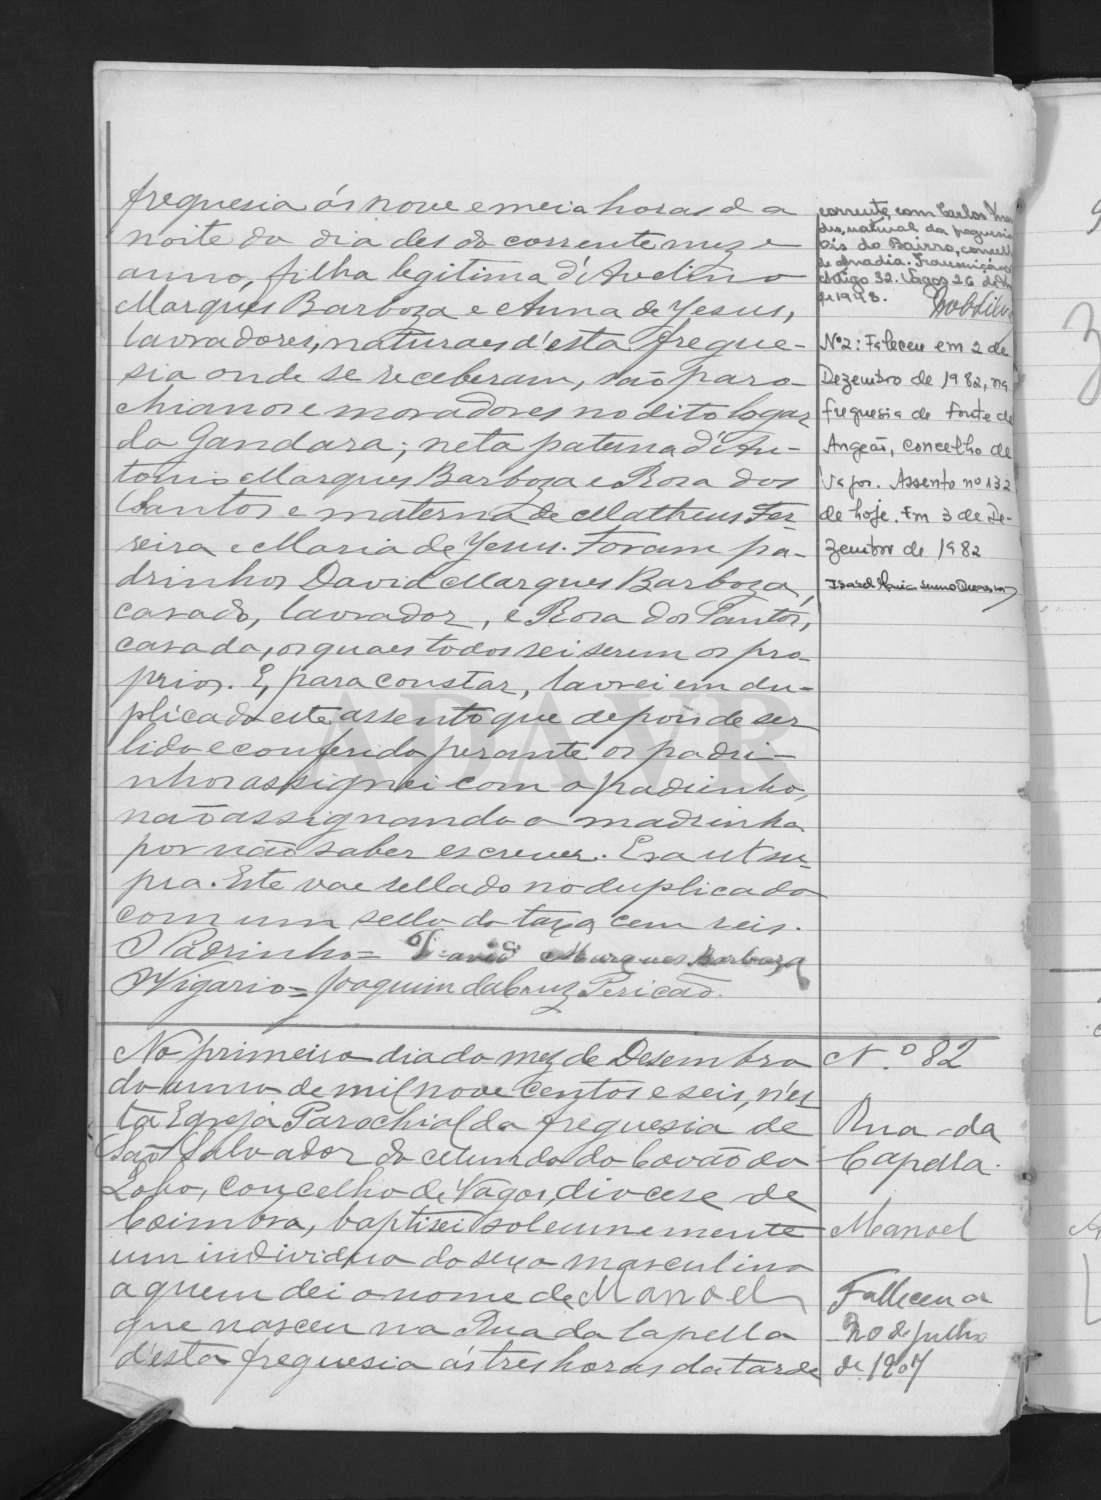 freguesia ás nove e meia horas da
noite do dia des do corrente mez e
anno, filha legitima d'Avelino
Marques Barboza e Anna de Jesus,
lavradores, naturaes d'esta fregue-
sia onde se receberam, são paro-
chianos e moradores no dito logar
da Gandara; neta paterna d'An-
tonio Marques Barboza e Rosa dos
Santos e materna de Matheus Fer-
reira e Maria de Jesus. Foram pa-
drinhos David Marques Barboza,
casado, lavrador, e Rosa dos Santos,
casada, os quaes todos sei serem os pro-
prios. E, para constar, lavrei em du-
plicado este assento que depois de ser
lido e conferido perante os padri-
nhos assignei com o padrinho,
não assignando a madrinha
por não saber escrever. Era ut su-
pra. Este vae sellado no duplicado
com um sello da taxa cem reis.
O Padrinho = David Marques Barboza
O Vigario = Joaquim da Cruz Pericão.
corrente, com Carlos
natural da freguesia
Ois do Bairro, concelho
de Anadia. Transcrição
Artigo 32. Vagos 26 de
de 1943.
Nº 2: Faleceu em 2 de
Dezembro de 1982, na
freguesia de Fonte de
Angeão, concelho de
Vagos. Assento nº 132
de hoje. Em 3 de De-
zembro de 1982
ADAVR
No primeiro dia do mez de Desembro
do anno de mil nove centos e seis, n'es-
ta Egreja Parochial da freguesia de
São Salvador do Mundo do Covão do
Lobo, concelho de Vagos, diocese de
Coimbra, baptisei solemnemente
um individuo do sexo masculino
a quem dei o nome de Manoel
que nasceu na Rua da Capella
d'esta freguesia ás tres horas da tarde
N.º 82
Rua da
Capella.
Manoel
Falleceu a
20 de julho
de 1907